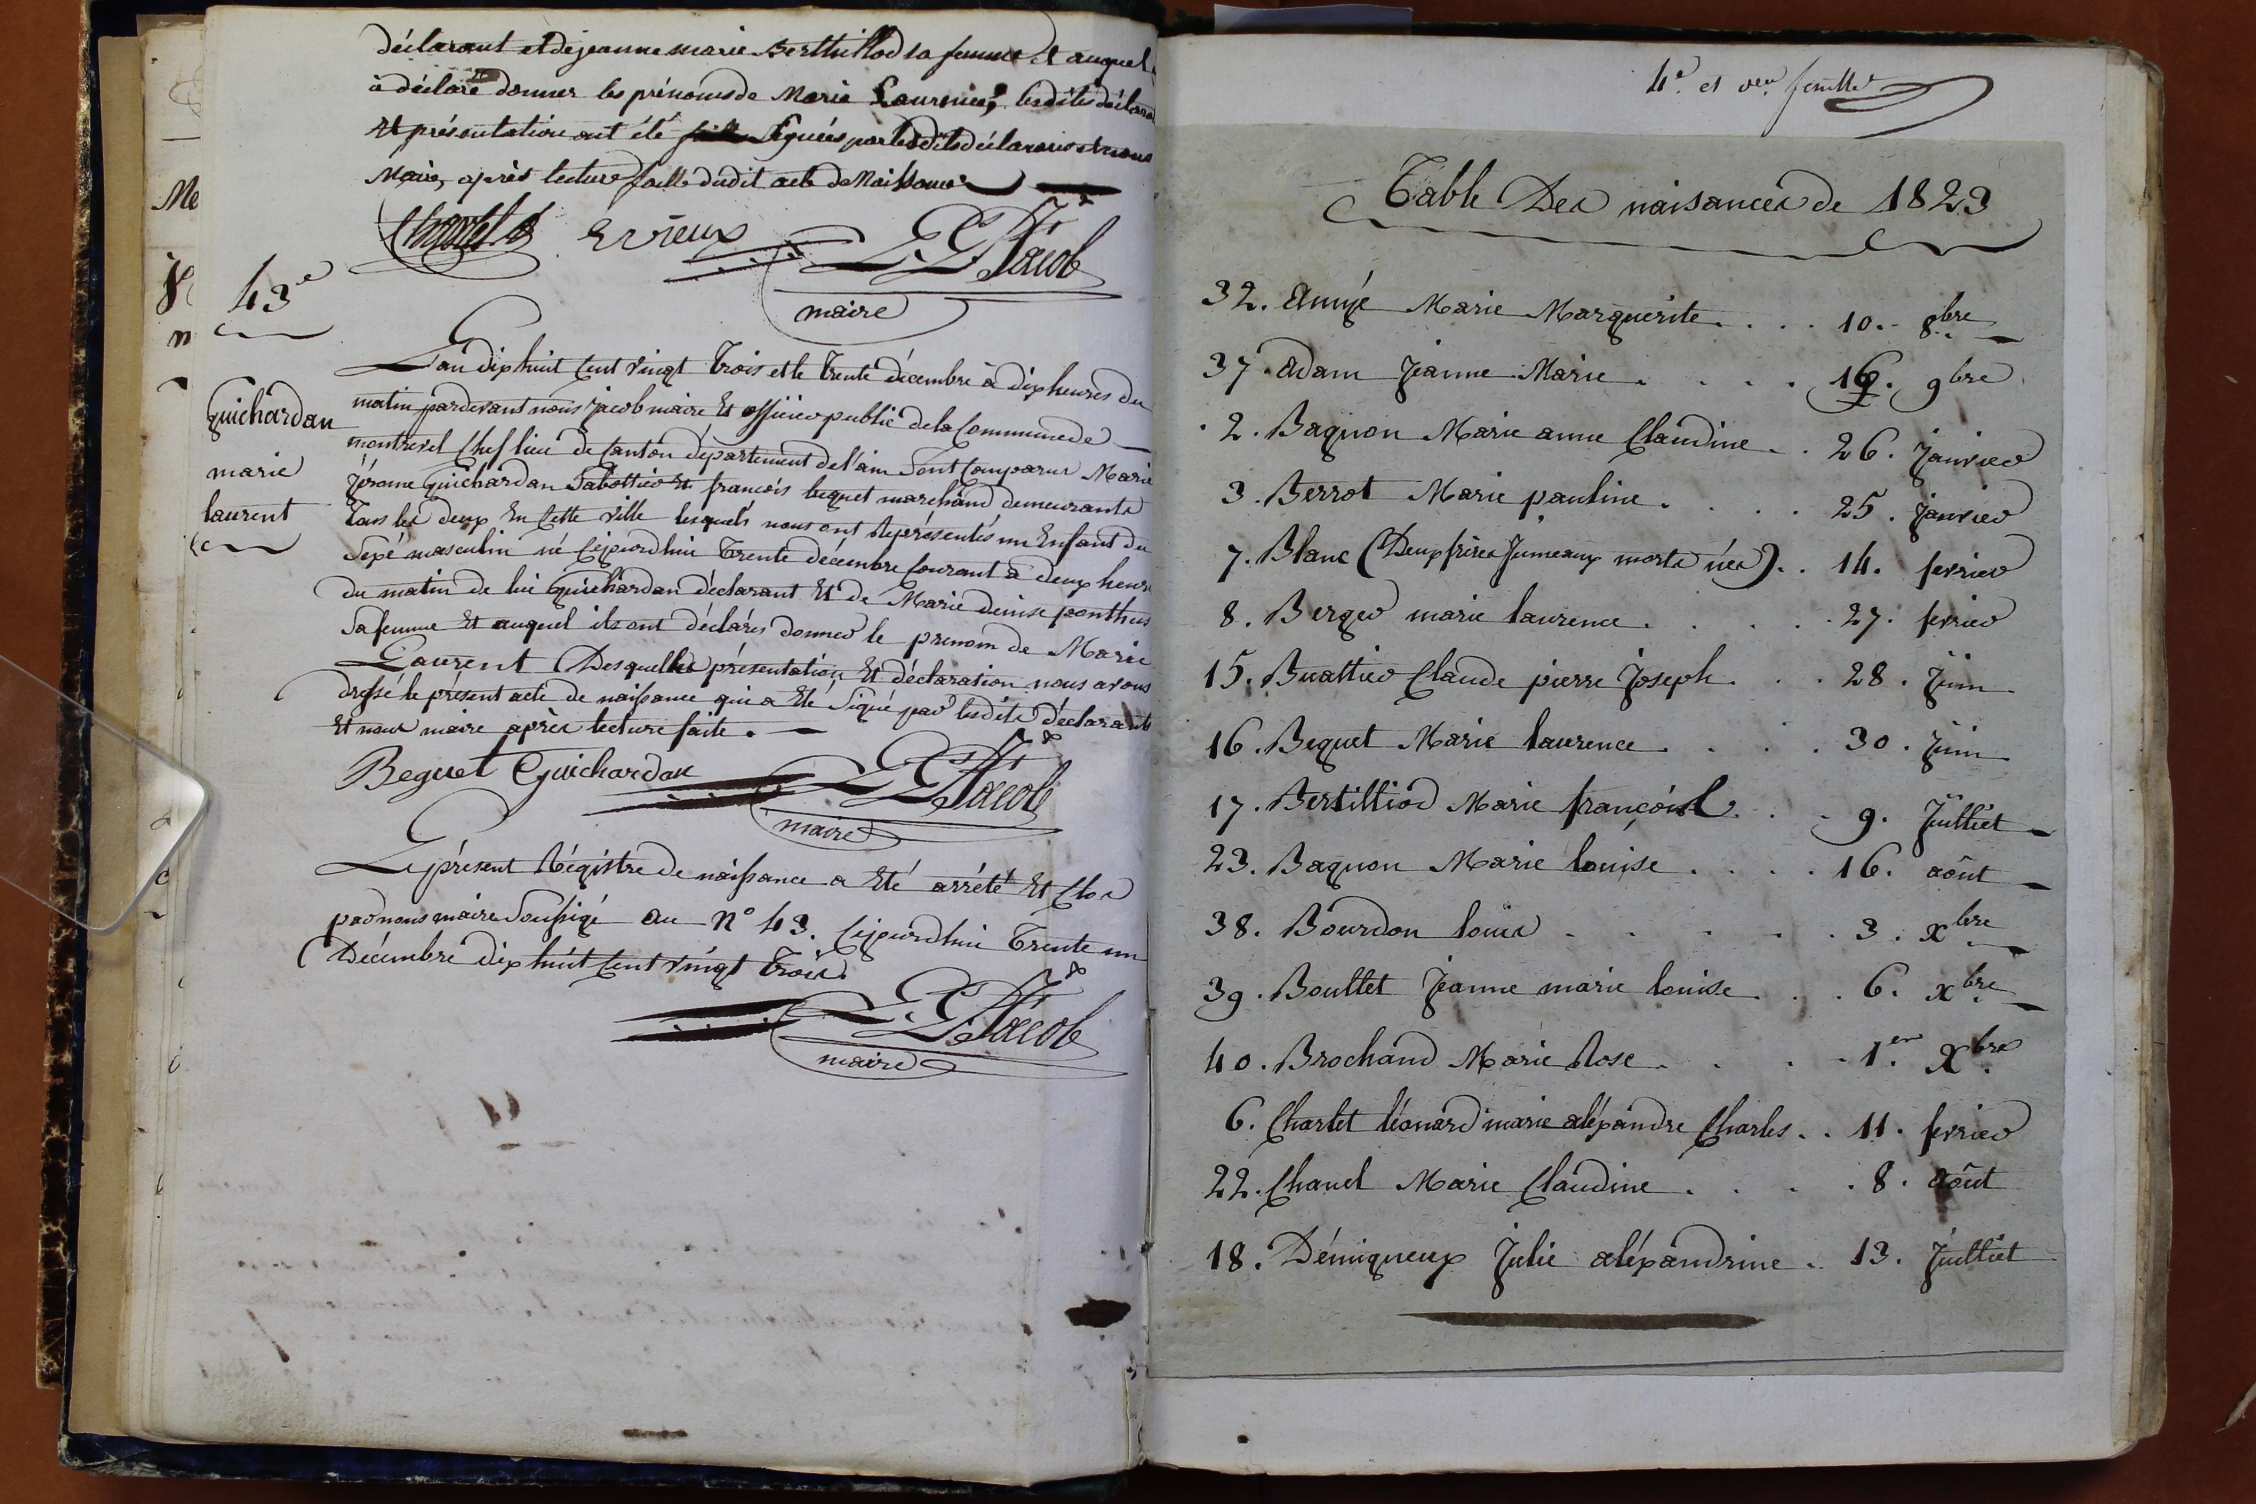 déclarant et de jeanne marie Berthillod sa femme et auquel
à déclaré donner les prénoms de Marie Laurence, lesdites déclara
Et présentation ont été signées par lesdits déclarants et nous
Maire, après lecture faite dudit acte de Naissance
Ervieux
Jacob
maire
43e
Guichardan
marie
laurent
L'an dix huit Cent vingt Trois et le Trente décembre à dix heures du
matin pardevant nous Jacob maire Et officier public de la Commune de
montrevel Chef lieu de Canton département de l'ain Sont Comparus Marie
Jérome Guichardan Sabottier Et françois bequet marchand demeurants
Tous les deux En Cette ville lesquels nous ont Représentés un Enfant du
Sexe masculin né Cejourdhui Trente décembre Courant à deux heures
du matin de lui Guichardan déclarant Et de Marie denise ponthus
Sa femme Et auquel ils ont déclarés donner le prenom de Marie
Laurent Desquelles présentation Et déclaration nous avons
dressé le présent acte de naissance qui a Eté Signé par lesdits déclarants
Et nous maire après lecture faite.
Beguet Guichardan
Jacob
maire
Le présent Régistre de naissance a Eté arrété Et Clos
par nous maire Soussigé au N° 43. Cejourdhui Trente un
Décembre dix huit Cent vingt Trois.
Jacob
maire
4e. et der. feuille
Table Des naisances de 1823
32. Marie Marguerite . . . 10. 8bre
37. Adam Jeanne Marie . . . . 9bre
2. Bagnon Marie anne Claudine . . 26. Janvier
3. Berrot Marie pauline . . . . 25. janvier
7. Blanc (Deux frères Jumeaux morts nés) . . 14. fevrier
8. Berger marie laurence . . . . 27. fevrier
15. Buattier Claude pierre Joseph . . . 28. Juin
16. Bequet Marie laurence . . . . 30. Juin
17. Bertilliod Marie . . . 9. Juilliet
23. Bagnon Marie louise . . . . 16. août
38. Bourdon louis . . . . . 3. xbre
39. Boullet Jeanne marie louise . . . 6. xbre
40. Brochand Marie Rose . . . . 1er. Xbre
6. Charlet léonard marie aléxandre Charles . . 11. fevrier
22. Chanel Marie Claudine . . . . 8. août
18. Démiqueux Julie aléxandrine . . 13. Juilliet